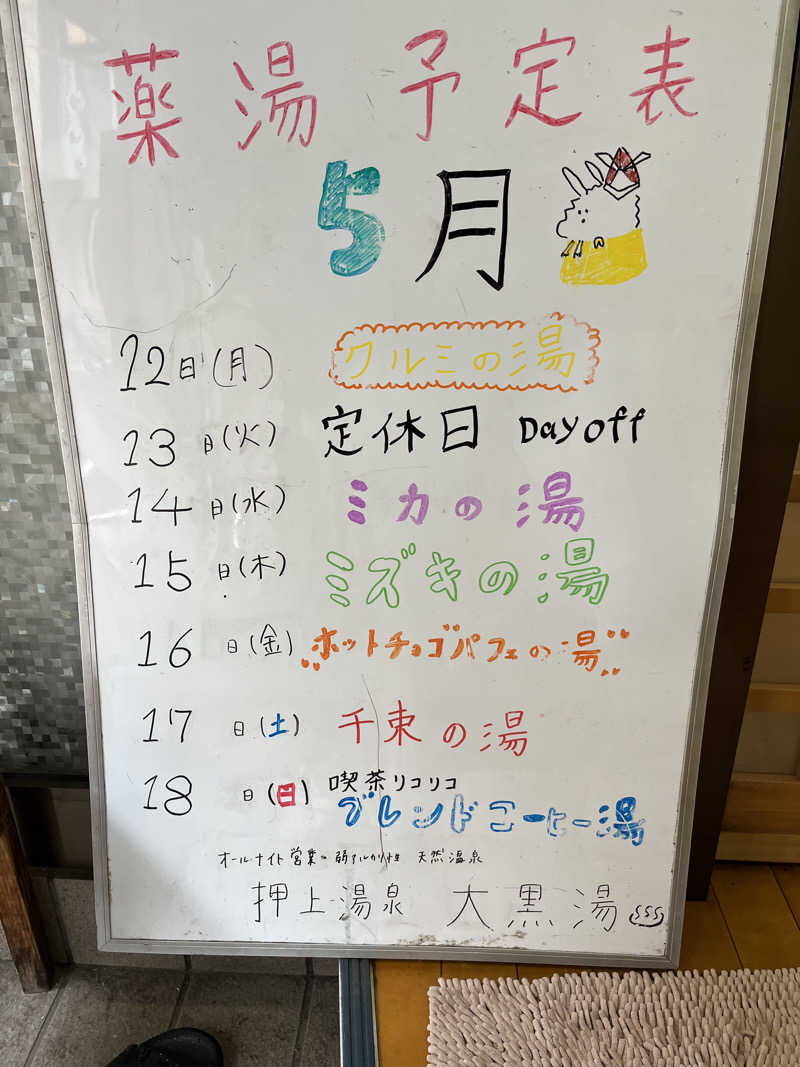 薬湯予定表
5月
12日(月) クルミの湯
13日(火) 定休日 Dayoff
14日(水) ミカの湯
15日(木) ミズキの湯
16日(金) ホットチョコパフェの湯
17日(土) 千束の湯
18日(日) 喫茶リコリコ
ブレンドコーヒー湯
オールナイト営業 弱アルカリ性 天然温泉
押上温泉 大黒湯